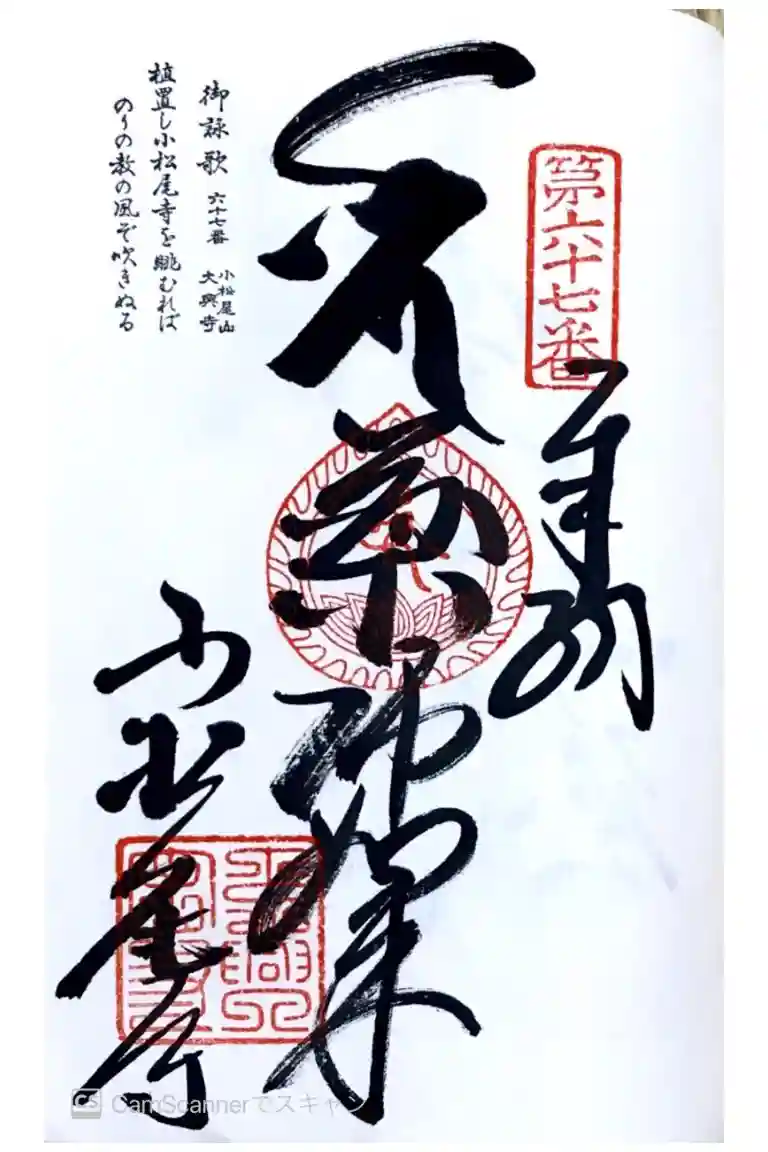 第六十七番
奉納
薬師如来
小松尾寺
御詠歌 六十七番 小松尾山 大興寺
植置し小松尾寺を眺むれば
のりの教の風ぞ吹きぬる
CS CamScannerでスキャン